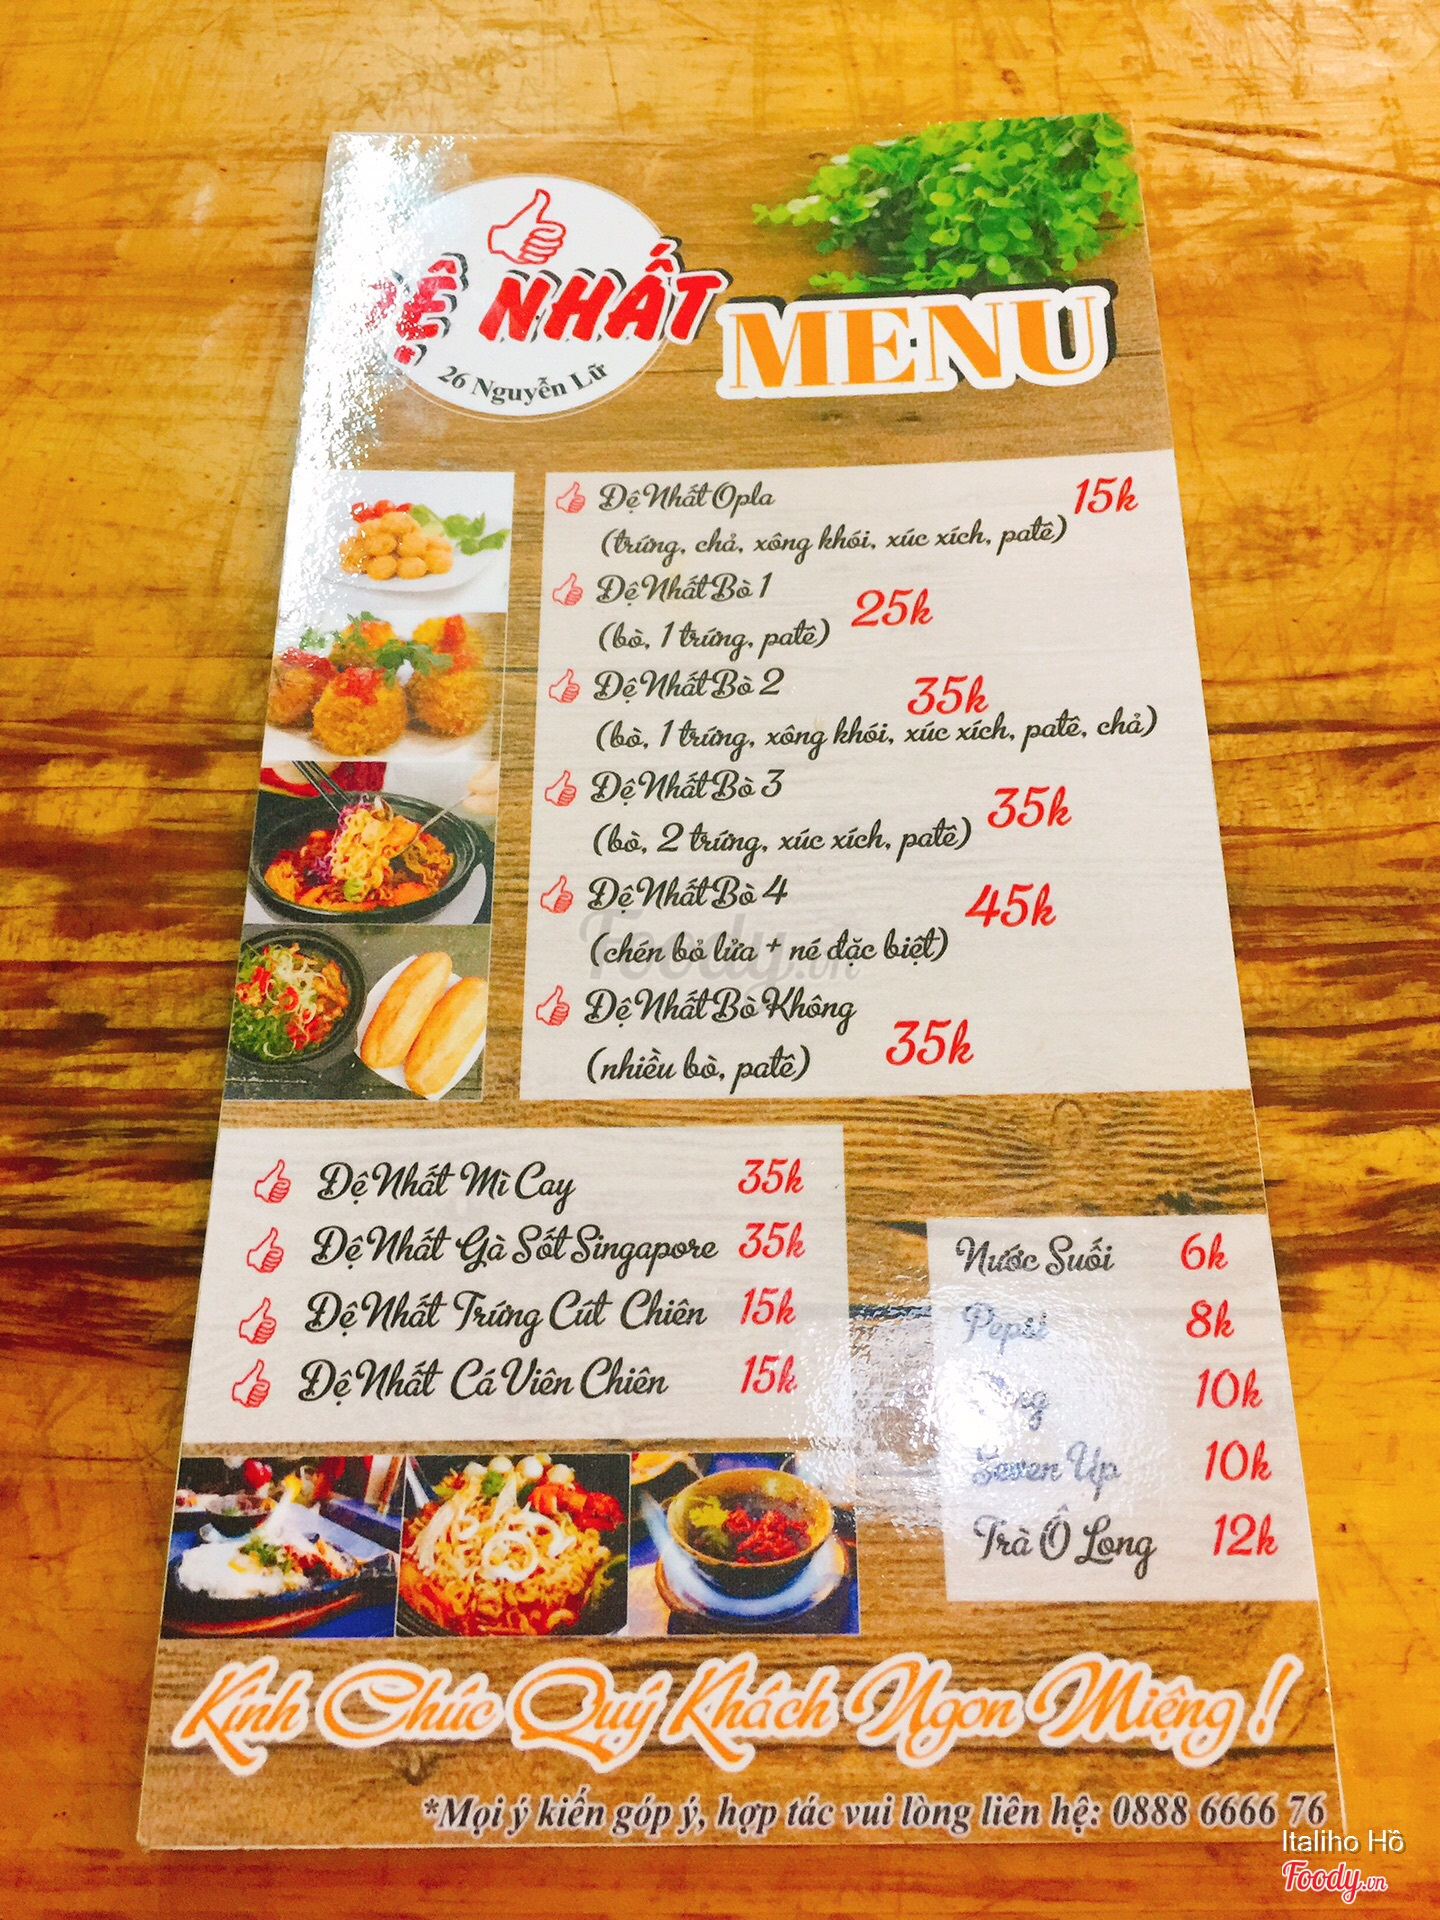 NHẤT
26 Nguyễn Lữ
MENU
Đệ Nhất Opla 15k
(trứng, chả, xông khói, xúc xích, patê)
Đệ Nhất Bò 1 25k
(bò, 1 trứng, patê)
Đệ Nhất Bò 2 35k
(bò, 1 trứng, xông khói, xúc xích, patê, chả)
Đệ Nhất Bò 3 35k
(bò, 2 trứng, xúc xích, patê)
Đệ Nhất Bò 4 45k
(chén bỏ lửa + né đặc biệt)
Đệ Nhất Bò Không 35k
(nhiều bò, patê)
Đệ Nhất Mì Cay 35k
Đệ Nhất Gà Sốt Singapore 35k
Đệ Nhất Trứng Cút Chiên 15k
Đệ Nhất Cá Viên Chiên 15k
Nước Suối 6k
Pepsi 8k
10k
Seven Up 10k
Trà Ô Long 12k
Kính Chúc Quý Khách Ngon Miệng !
*Mọi ý kiến góp ý, hợp tác vui lòng liên hệ: 0888 6666 76
Foody.vn
Italiho Hồ
Foody.vn